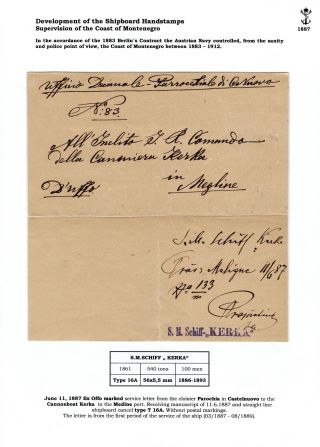 Development of the Shipboard Handstamps
Supervision of the Coast of Montenegro
1887
In the accordance of the 1883 Berlin's Contract the Austrian Navy controlled, from the sanity
and police point of view, the Coast of Montenegro between 1883 – 1912.
Uffizio Decanale - Parrocchiale di C.Nuovo
No: 83.
All' Inclito I. R. Comando
della Canoniera Kerka
in
D'uffo
Megline
S.M. Schiff Kerka
Präs: Meligne 11/6 87
No 133
S. M. Schiff „KERKA"
S.M.SCHIFF „ KERKA"
1861 540 tons 100 men
Type 16A 56x5,5 mm 1886-1893
June 11, 1887 Ex Offo marked service letter from the cloister Parochia in Castelnuovo to the
Cannonboat Kerka in the Medine port. Receiving manuscript of 11.6.1887 and straight line
shipboard cancel type T 16A. Without postal markings.
The letter is from the first period of the service of the ship (03/1887 - 08/1889).